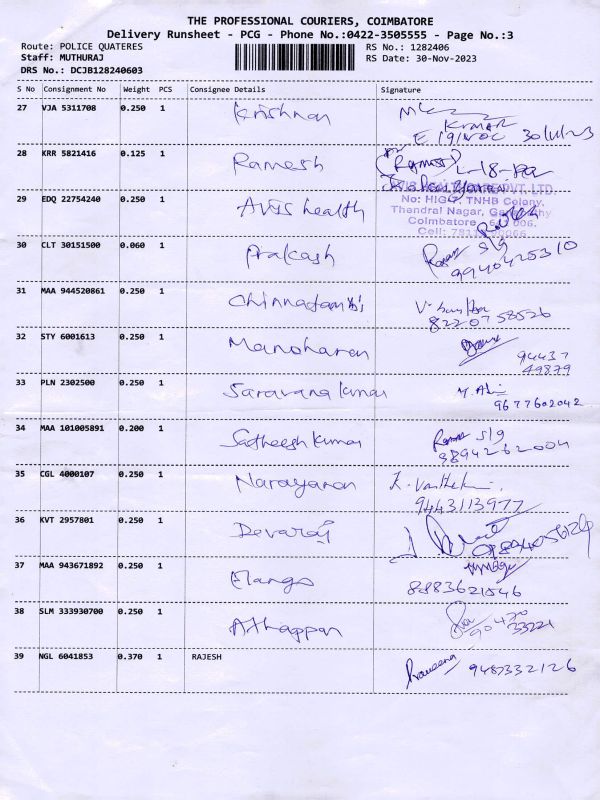 THE PROFESSIONAL COURIERS, COIMBATORE
Delivery Runsheet - PCG - Phone No.:0422-3505555 - Page No.:3
Route: POLICE QUATERES RS No.: 1282406
Staff: MUTHURAJ RS Date: 30-Nov-2023
DRS No.: DCJB128240603
S No Consignment No Weight PCS Consignee Details Signature
27 VJA 5311708 0.250 1 Krishnan
KUMAR
30/11/23
28 KRR 5821416 0.125 1 Ramesh
29 EDQ 22754240 0.250 1 Avis health
PVT. LTD.
No: HIG TNHB Colony,
Thendral Nagar,
Coimbatore
Cell:
30 CLT 30151500 0.060 1 Prakash
S/g
9940425310
31 MAA 944520861 0.250 1
8220758526
32 STY 6001613 0.250 1 Manoharan
94437
49879
33 PLN 2302500 0.250 1 Saravana kumar
9677602042
34 MAA 101005891 0.200 1 Satheesh kumar
S/g
9894262004
35 CGL 4000107 0.250 1 Narayanan
9443113977
36 KVT 2957801 0.250 1 Devaraj
37 MAA 943671892 0.250 1 Elango
8883621546
38 SLM 333930700 0.250 1 Athappan
90470
33221
39 NGL 6041853 0.370 1 RAJESH Praveena 9487332126